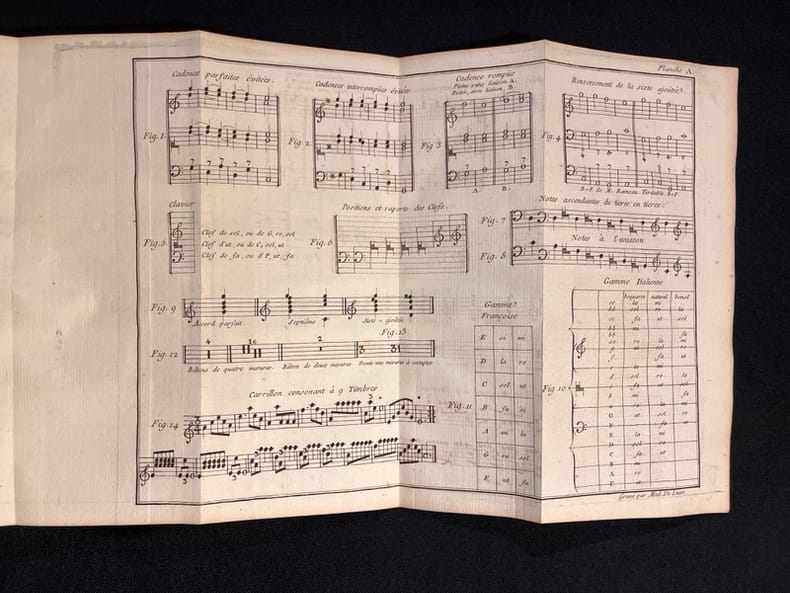 Planche A.
Cadences parfaites évitées.
Cadences interrompües évitées
Cadence rompüe
Pleine sans liaison. A.
avec liaison. B.
Renversement de la sixte ajoutée.
Fig. 1.
Fig. 2.
Fig. 3
Fig. 4
7 7 7 7
A. B.
B-F de M. Rameau. Véritable B-F
Clavier
Fig. 5.
Clef de sol, ou de G, re, sol
Clef d'ut, ou de C, sol, ut
Clef de fa, ou d'F, ut, fa
Positions et raports des Clefs.
Fig. 6
Notes ascendantes de tierce en tierce.
Fig. 7
Notes à l'unisson
Fig. 8
Fig. 9
Accord parfait
Septiême
Sixte-ajoutée
Fig. 12
4 16 2
Bâtons de quatre mesures.
Bâton de deux mesures
Fig. 13.
3 31
Trente une mesures à compter
Carrillon consonant à 9 Timbres
Fig. 14
Gamme
Françoise
Fig. 11
E si mi
D la re
C sol ut
B fa si
A mi la
G re sol
F ut fa
Gamme Italienne
Fig. 10
bequarre naturel bemol
Gravé par Mad. De Lusse